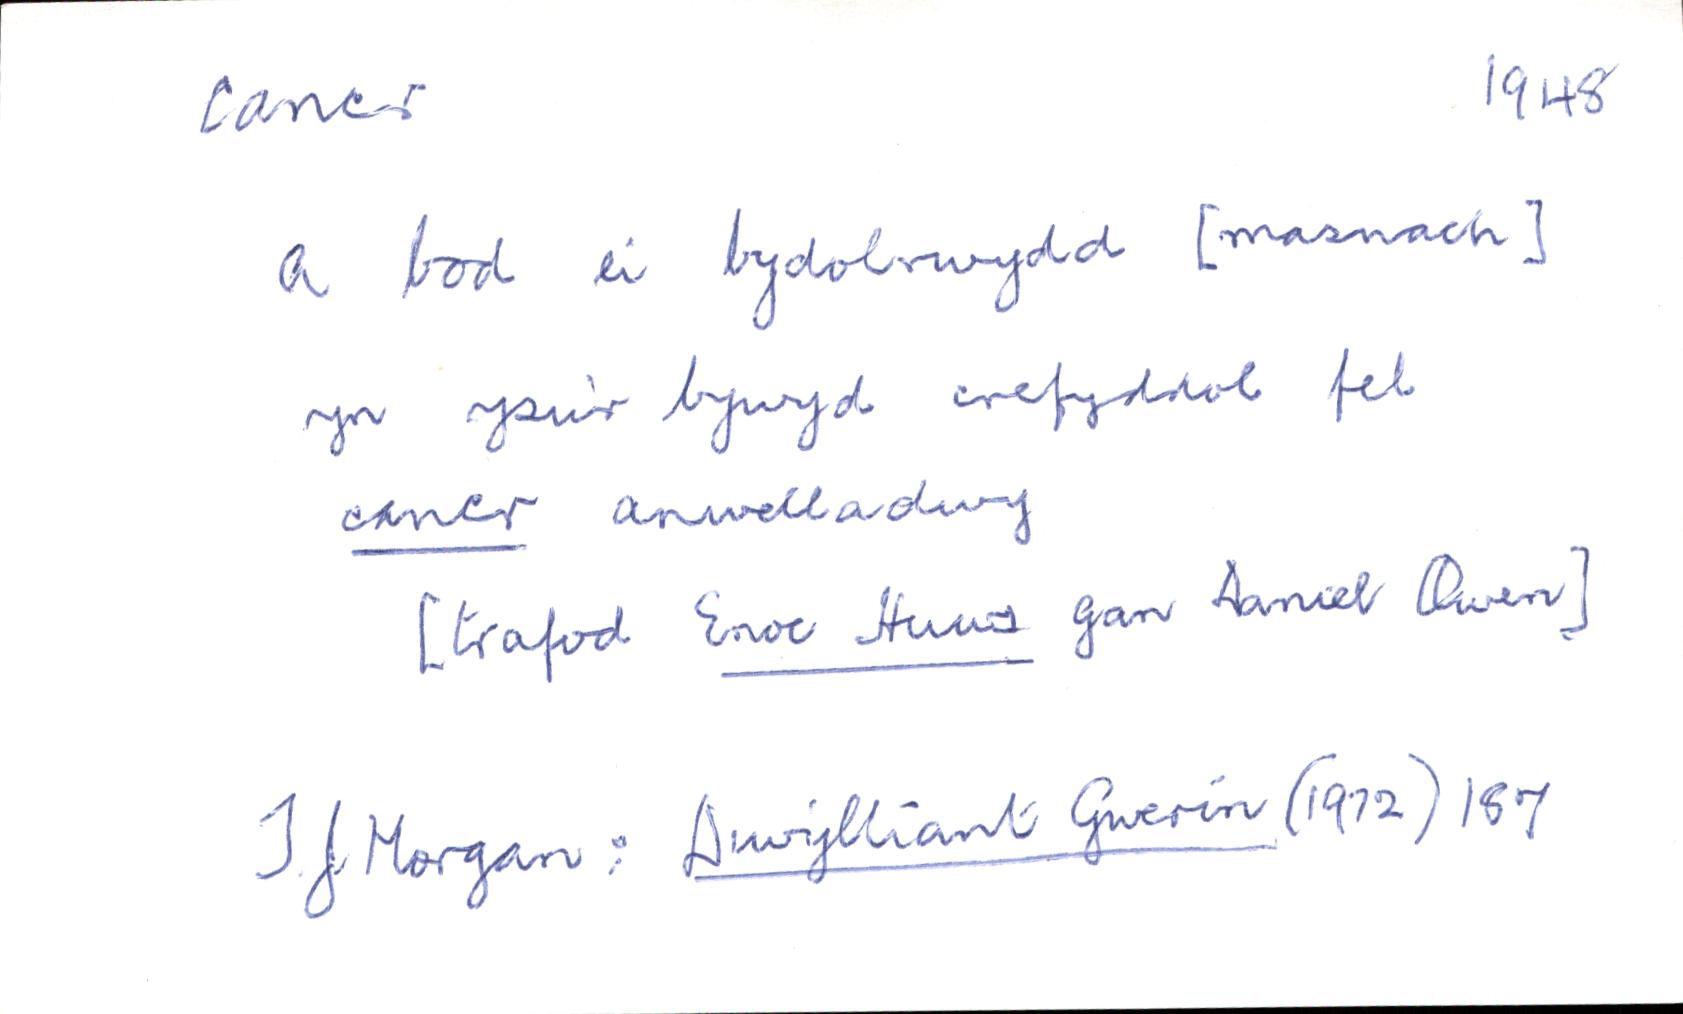 cancr 1948
a bod ei bydolrwydd [masnach]
yn ysu'r bywyd crefyddol fel
cancr anwelladwy
[trafod Enoc Huws gan Daniel Owen]
T. J. Morgan: Diwylliant Gwerin (1972) 187